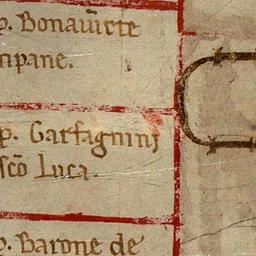 p. Bonauīcte
mpane.
p. Garfagnini
scō Luca.
p. Barone de